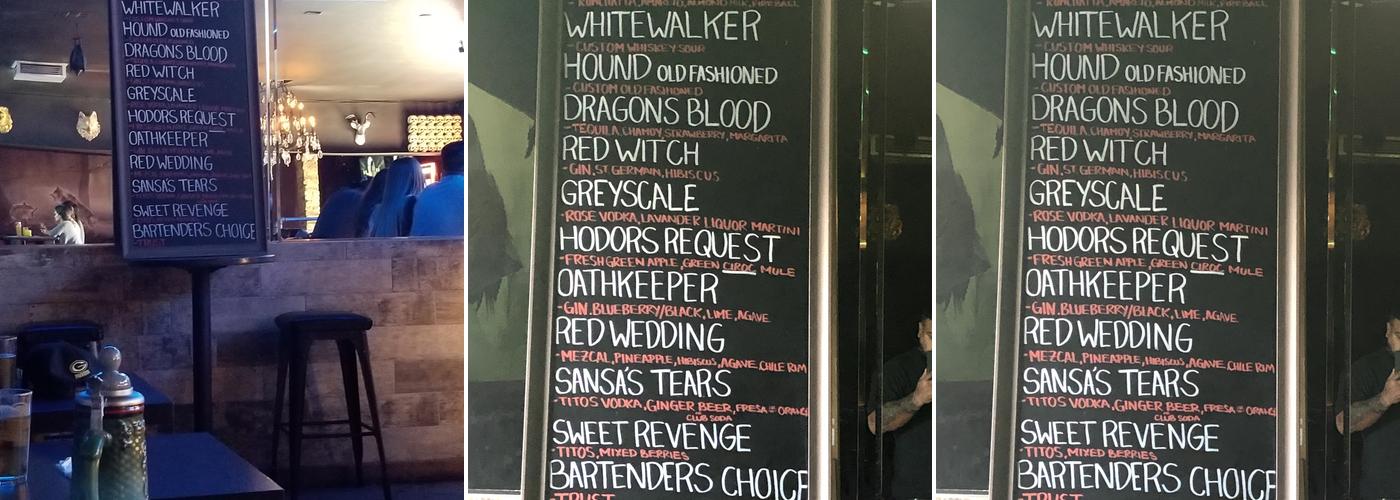 WHITEWALKER
HOUND OLD FASHIONED
DRAGONS BLOOD
RED WITCH
GREYSCALE
HODORS REQUEST
OATHKEEPER
RED WEDDING
SANSA'S TEARS
SWEET REVENGE
BARTENDERS CHOICE
-TRUST
G
-RUMCHATTA, AMARETO, ALMOND MILK, FIREBALL
WHITEWALKER
-CUSTOM WHISKEY SOUR
HOUND OLD FASHIONED
-CUSTOM OLD FASHIONED
DRAGONS BLOOD
-TEQUILA, CHAMOY, STRAWBERRY, MARGARITA
RED WITCH
-GIN, ST GERMAIN, HIBISCUS
GREYSCALE
-ROSE VODKA, LAVANDER LIQUOR MARTINI
HODORS REQUEST
-FRESH GREEN APPLE, GREEN CIROC MULE
OATHKEEPER
-GIN. BLUEBERRY/BLACK, LIME, AGAVE
RED WEDDING
-MEZCAL, PINEAPPLE, HIBISCUS, AGAVE, CHILE RIM
SANSA'S TEARS
-TITOS VODKA, GINGER BEER, FRESA OR ORANGE
CLUB SODA
SWEET REVENGE
-TITOS, MIXED BERRIES
BARTENDERS CHOICE
-TRUST
-RUMCHATTA, AMARETO, ALMOND MILK, FIREBALL
WHITEWALKER
-CUSTOM WHISKEY SOUR
HOUND OLD FASHIONED
-CUSTOM OLD FASHIONED
DRAGONS BLOOD
-TEQUILA, CHAMOY, STRAWBERRY, MARGARITA
RED WITCH
-GIN, ST GERMAIN, HIBISCUS
GREYSCALE
-ROSE VODKA, LAVANDER LIQUOR MARTINI
HODORS REQUEST
-FRESH GREEN APPLE, GREEN CIROC MULE
OATHKEEPER
-GIN. BLUEBERRY/BLACK, LIME, AGAVE
RED WEDDING
-MEZCAL, PINEAPPLE, HIBISCUS, AGAVE, CHILE RIM
SANSA'S TEARS
-TITOS VODKA, GINGER BEER, FRESA OR ORANGE
CLUB SODA
SWEET REVENGE
-TITOS, MIXED BERRIES
BARTENDERS CHOICE
-TRUST